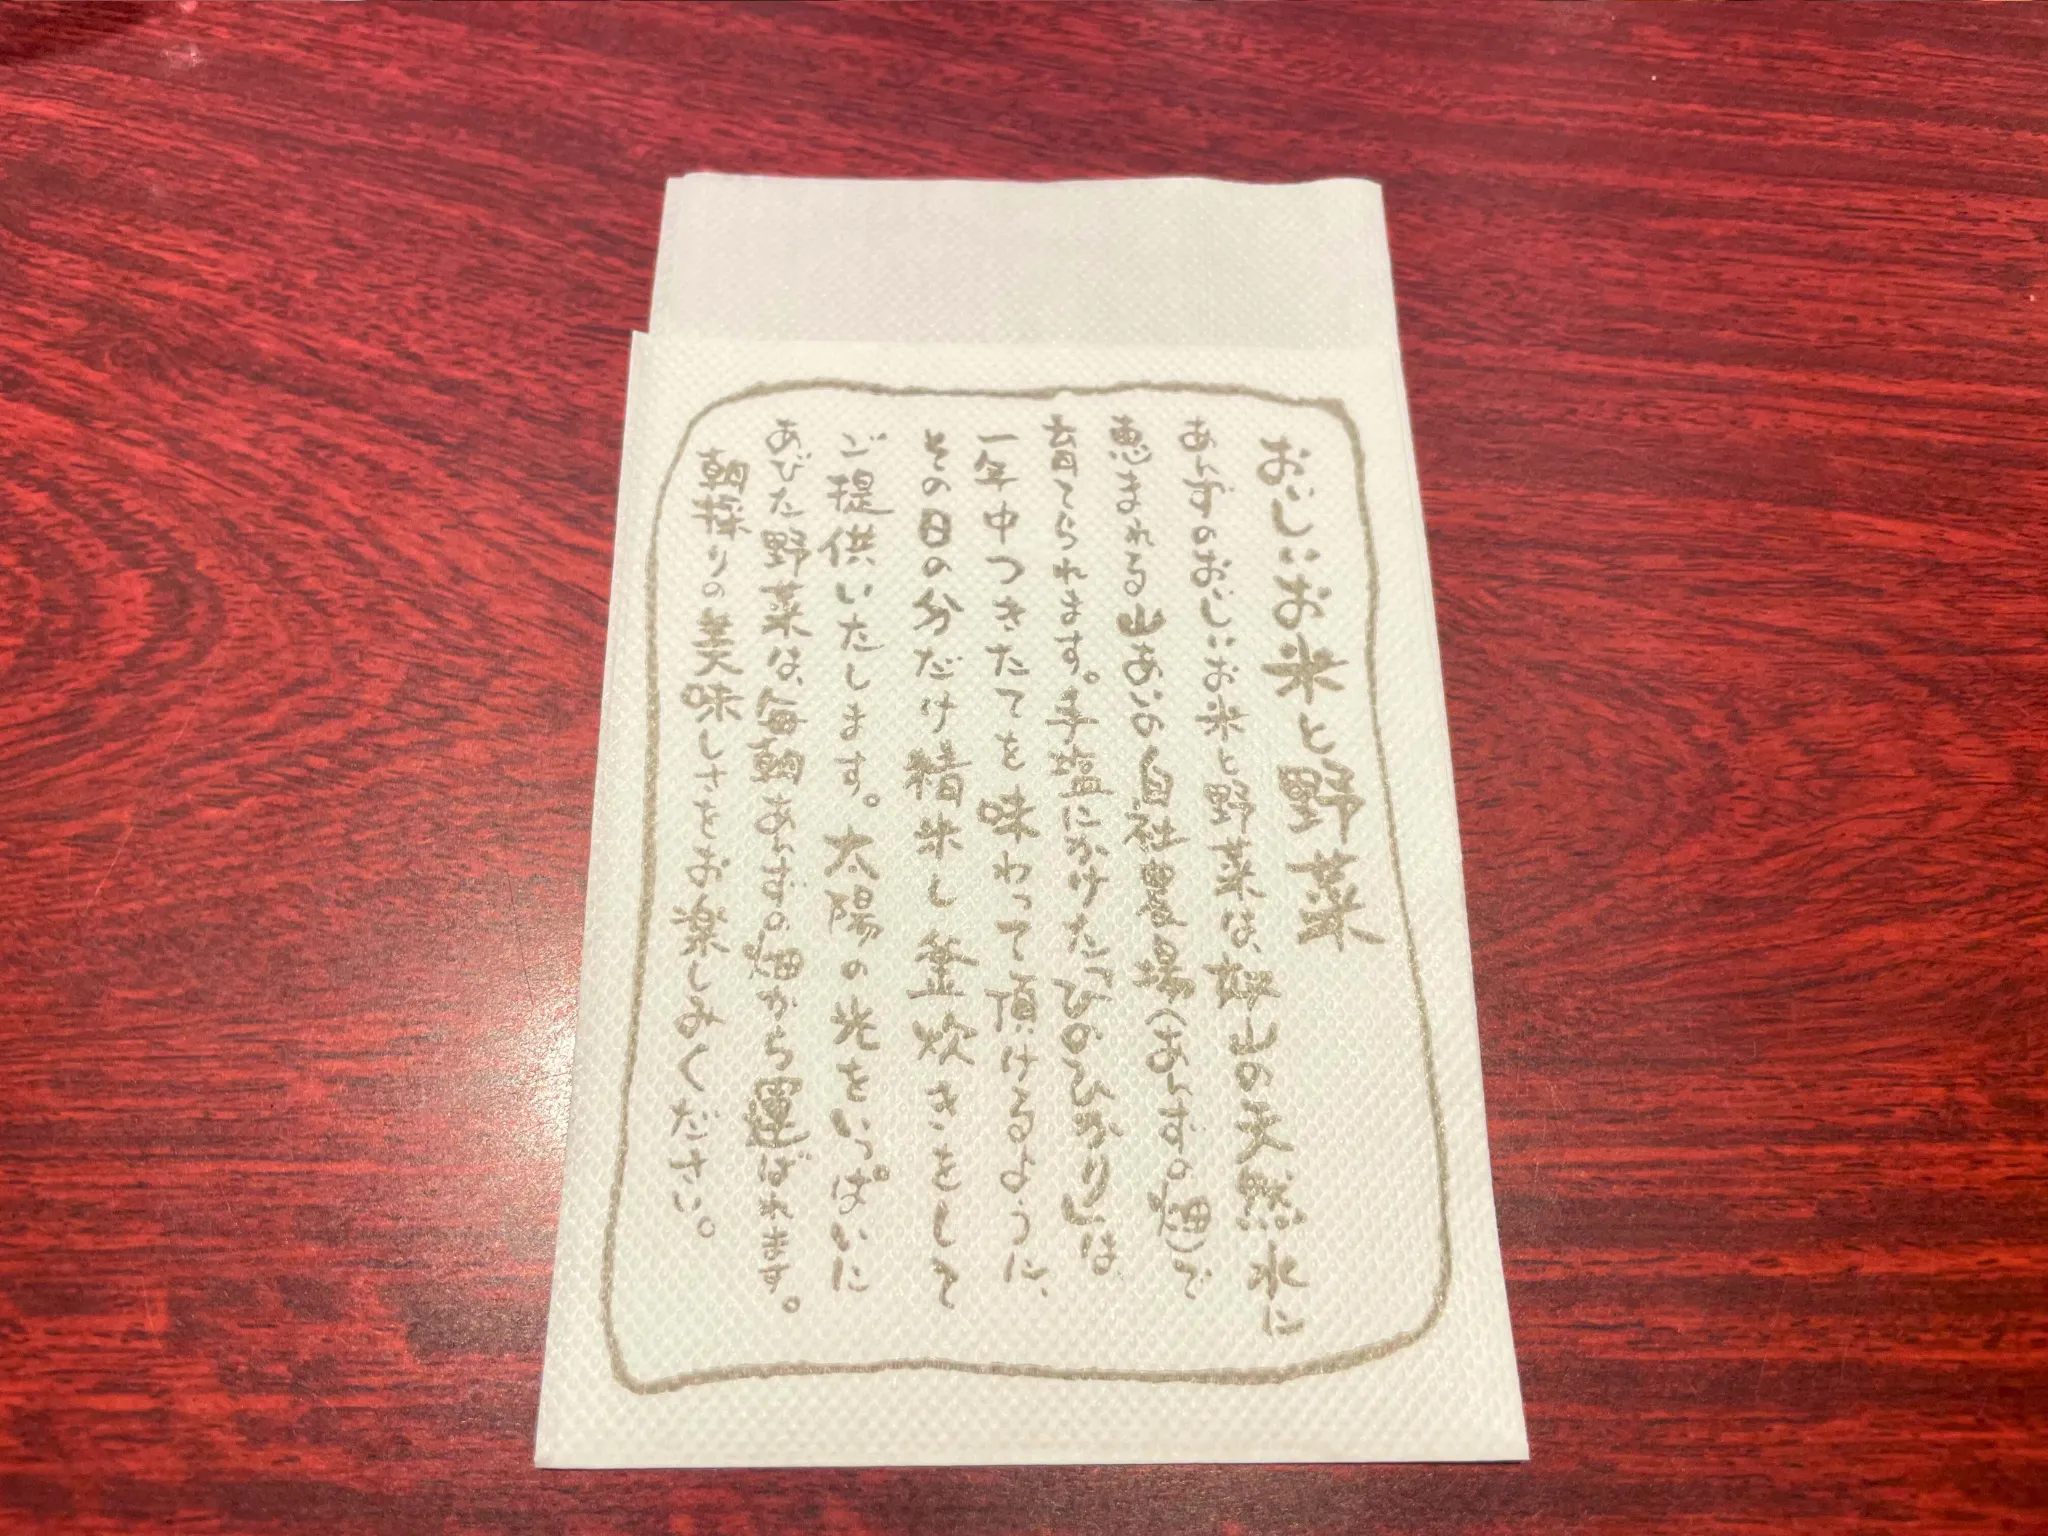 おいしいお米と野菜
あんずのおいしいお米と野菜は、好山の天然水に
恵まれる山あいの自社農場(あんずの畑)で
育てられます。手塩にかけた「ひのひかり」は
一年中つきたてを味わって頂けるように、
その日の分だけ精米し釜炊きをして
ご提供いたします。太陽の光をいっぱいに
あびた野菜は、毎朝あんずの畑から運ばれます。
朝採りの美味しさをお楽しみください。